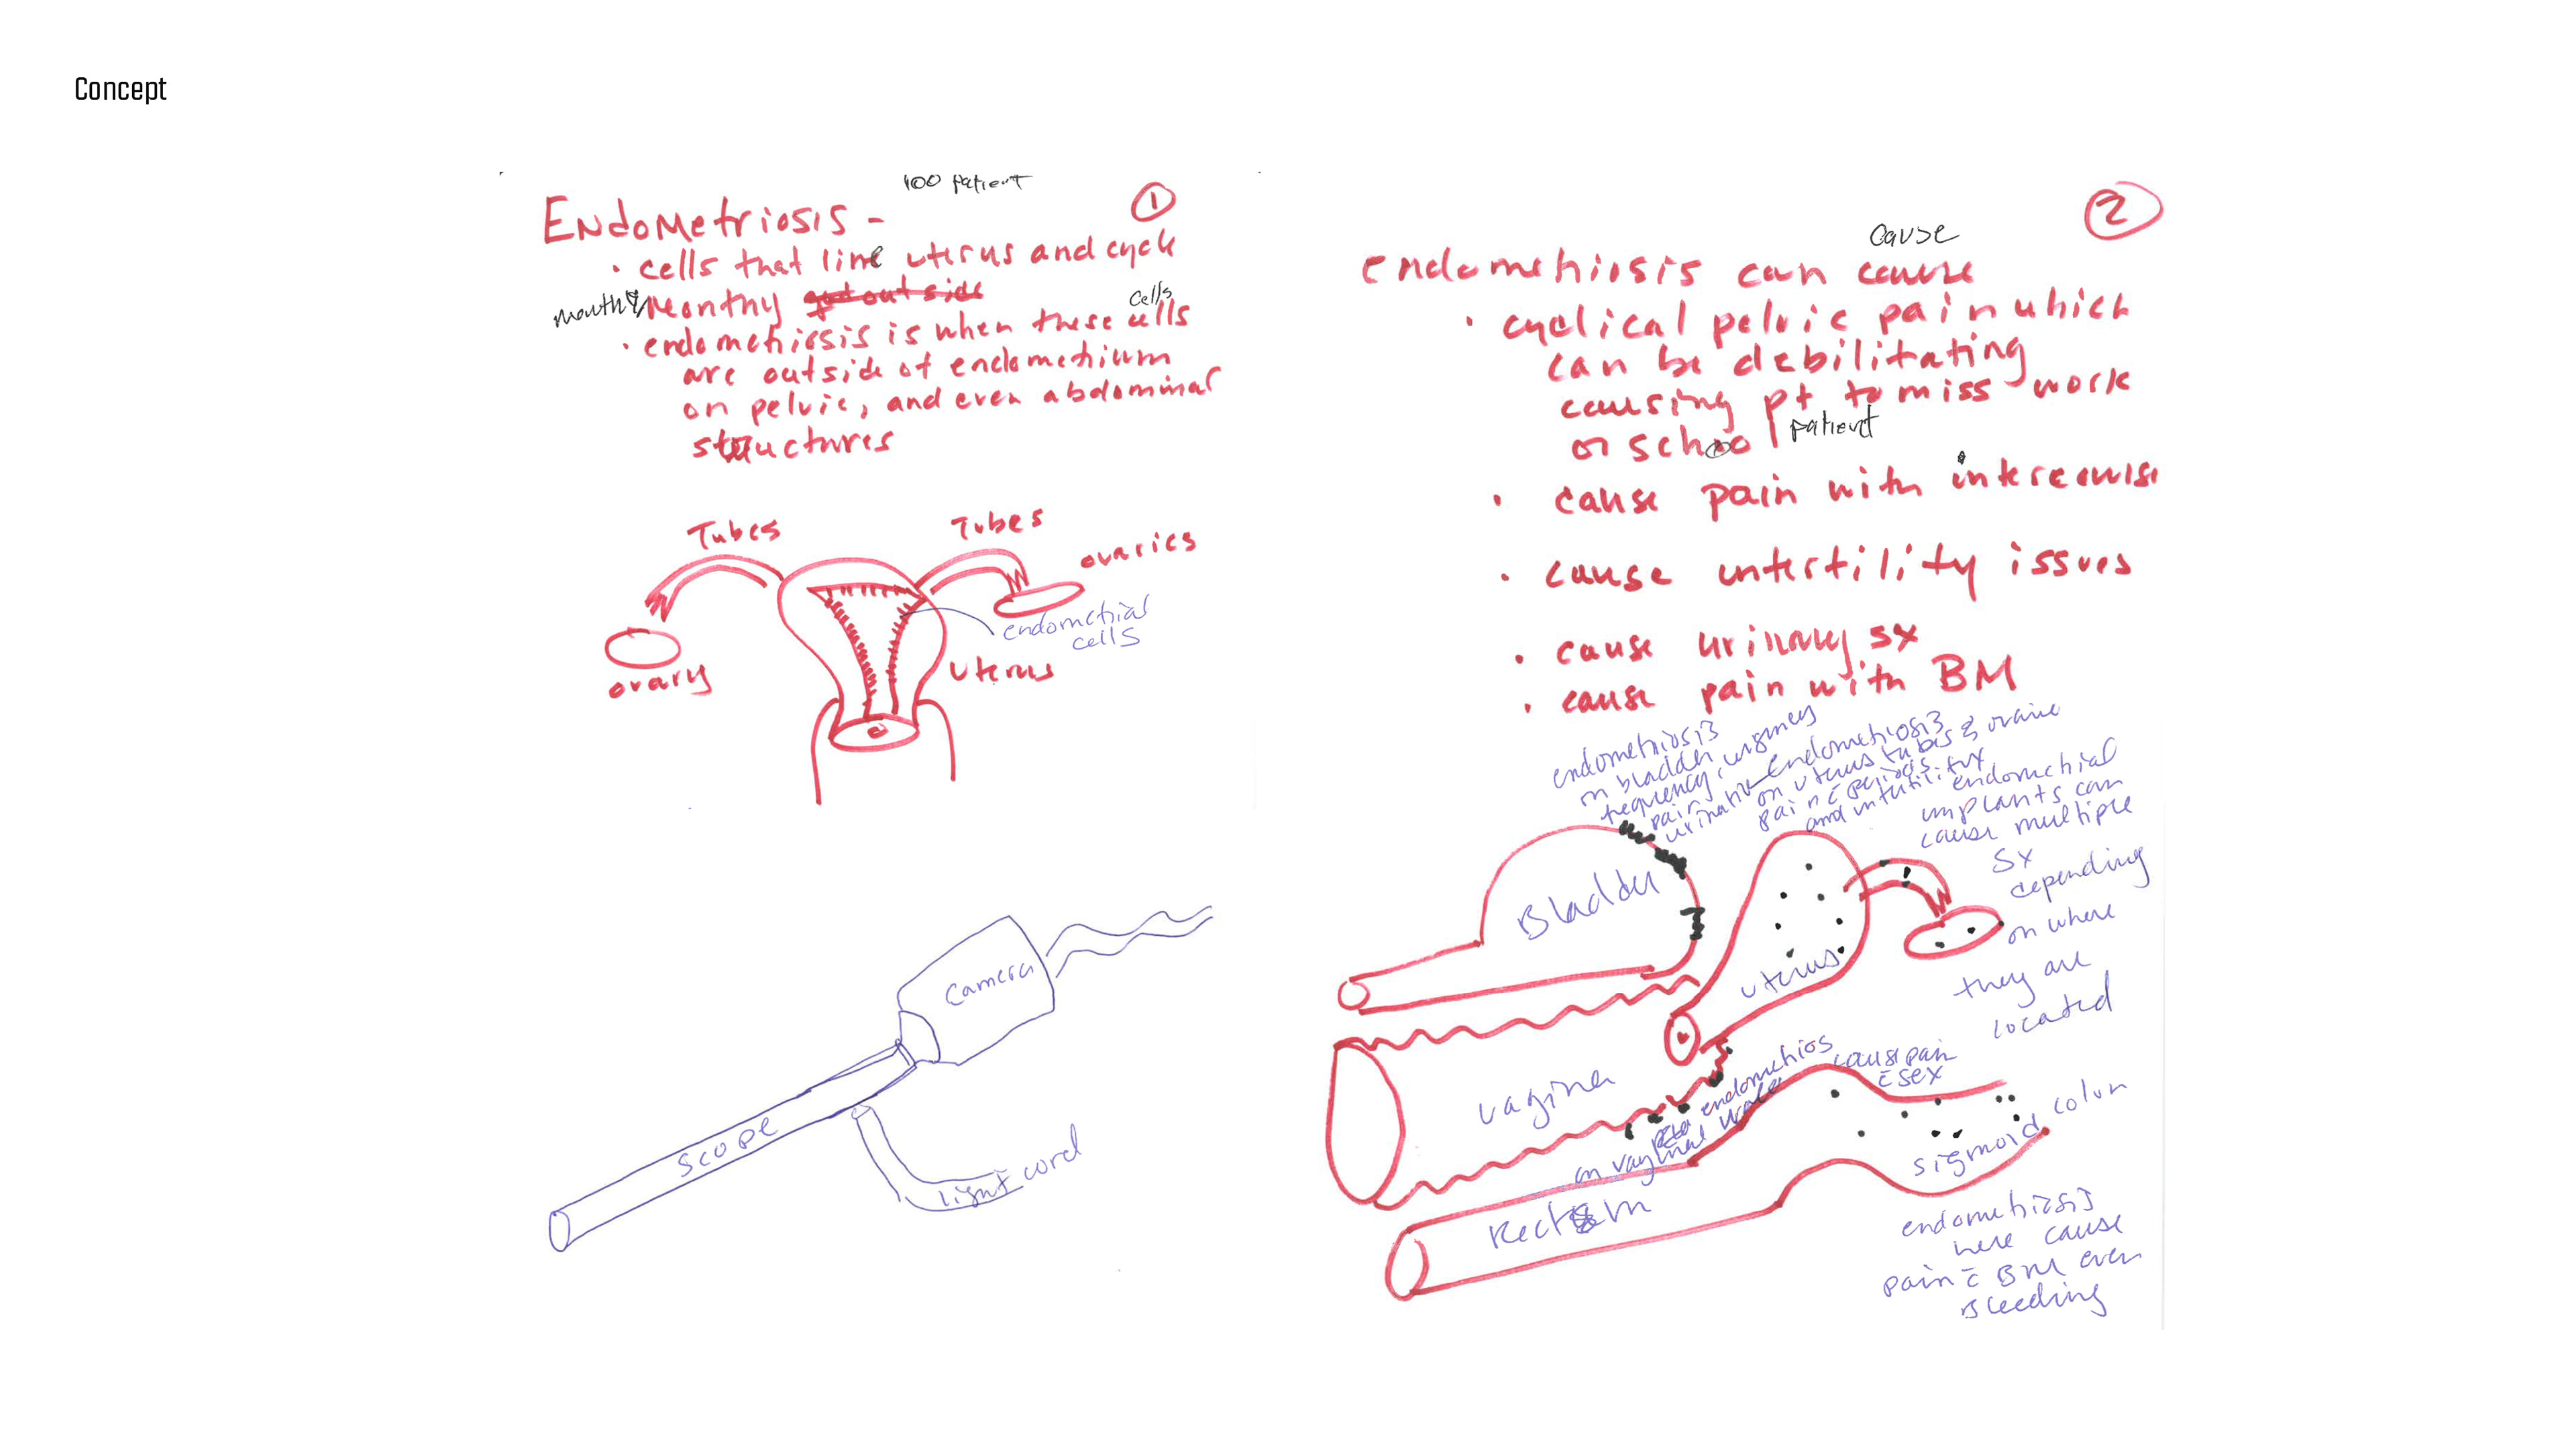 Concept
100 patient
①
Endometriosis -
· cells that line uterus and cycle
monthly Monthy got outside
cells
· endometriosis is when these cells
are outside of endometrium
on pelvic, and even abdominal
structures
Tubes
Tubes
ovaries
endometrial
cells
ovary
Uterus
camera
scope
light cord
②
cause
endometriosis can cause
· cyclical pelvic pain which
can be debilitating
causing pt to miss work
or school patient
· cause pain with intercourse
· cause infertility issues
· cause urinary sx
· cause pain with BM
endometriosis
on bladder urgency
frequency,
pain
urinating
endometriosis
on uterus tubes &
pain c̄ periods
and infertility
endometrial
implants can
cause multiple
Sx
depending
on where
they are
located
Bladder
uterus
vagina
endometrios
on vaginal walls
cause pain
c̄ sex
Rectum
sigmoid colon
endometriosis
here cause
pain c̄ BM even
Bleeding